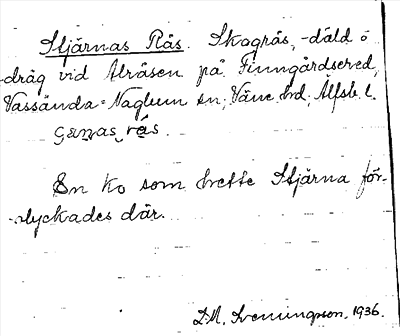 Stjärnas Rås. Skogrås, -däld o
dråg vid Alråsen på Finngårdsered,
Vassända-Naglum sn; Väne hd; Älfsb l.
En ko som hette Stjärna för-
olyckades där.
D.M. Svenningson, 1936.